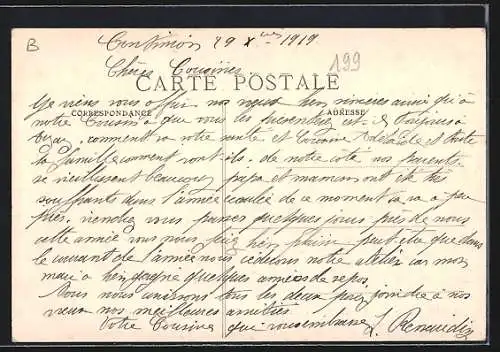 B
29 Xbre 1919
199
Chère Cousine
CARTE POSTALE
Je viens vous offrir nos vœux bien sincères ainsi qu'à
CORRESPONDANCE
ADRESSE
notre Cousin que vous les
comment va votre santé et Cousine et toute
la famille comment vont-ils. de notre côté nos parents
se vieillissent beaucoup papa et maman ont été très
souffrants dans l'année écoulée de ce moment sa va à peu
près. viendrez vous passer quelques jours près de nous
cette année vous nous bien plaisir peut être que dans
le courant de l'année nous céderons notre atelier car mon
mari a bien gagné quelques années de repos
Nous nous unissons tous les deux pour joindre à nos
vœux nos meilleures amitiés
Votre Cousine qui vous embrasse L.